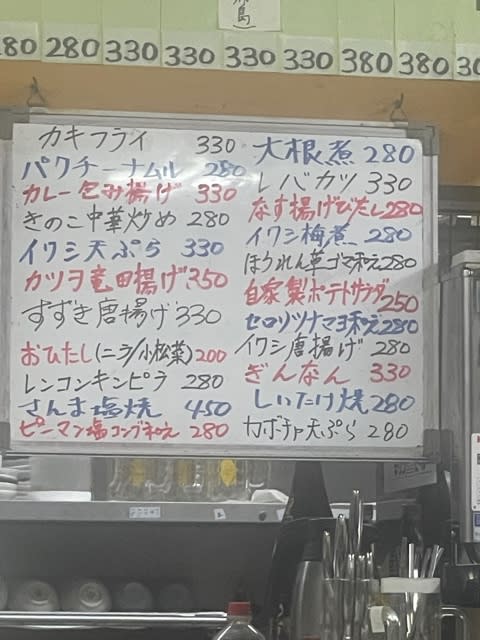 280 280 330 330 330 330 380 380 30
カキフライ 330
パクチーナムル 280
カレー包み揚げ 330
きのこ中華炒め 280
イワシ天ぷら 330
カツヲ竜田揚げ 350
すずき唐揚げ 330
おひたし(ニラ/小松菜) 200
レンコンキンピラ 280
さんま塩焼 450
ピーマン塩コンブ和え 280
大根煮 280
レバカツ 330
なす揚げびたし 280
イワシ梅煮 280
ほうれん草ゴマ和え 280
自家製ポテトサラダ 250
セロリツナマヨ和え 280
イワシ唐揚げ 280
ぎんなん 330
しいたけ焼 280
カボチャ天ぷら 280